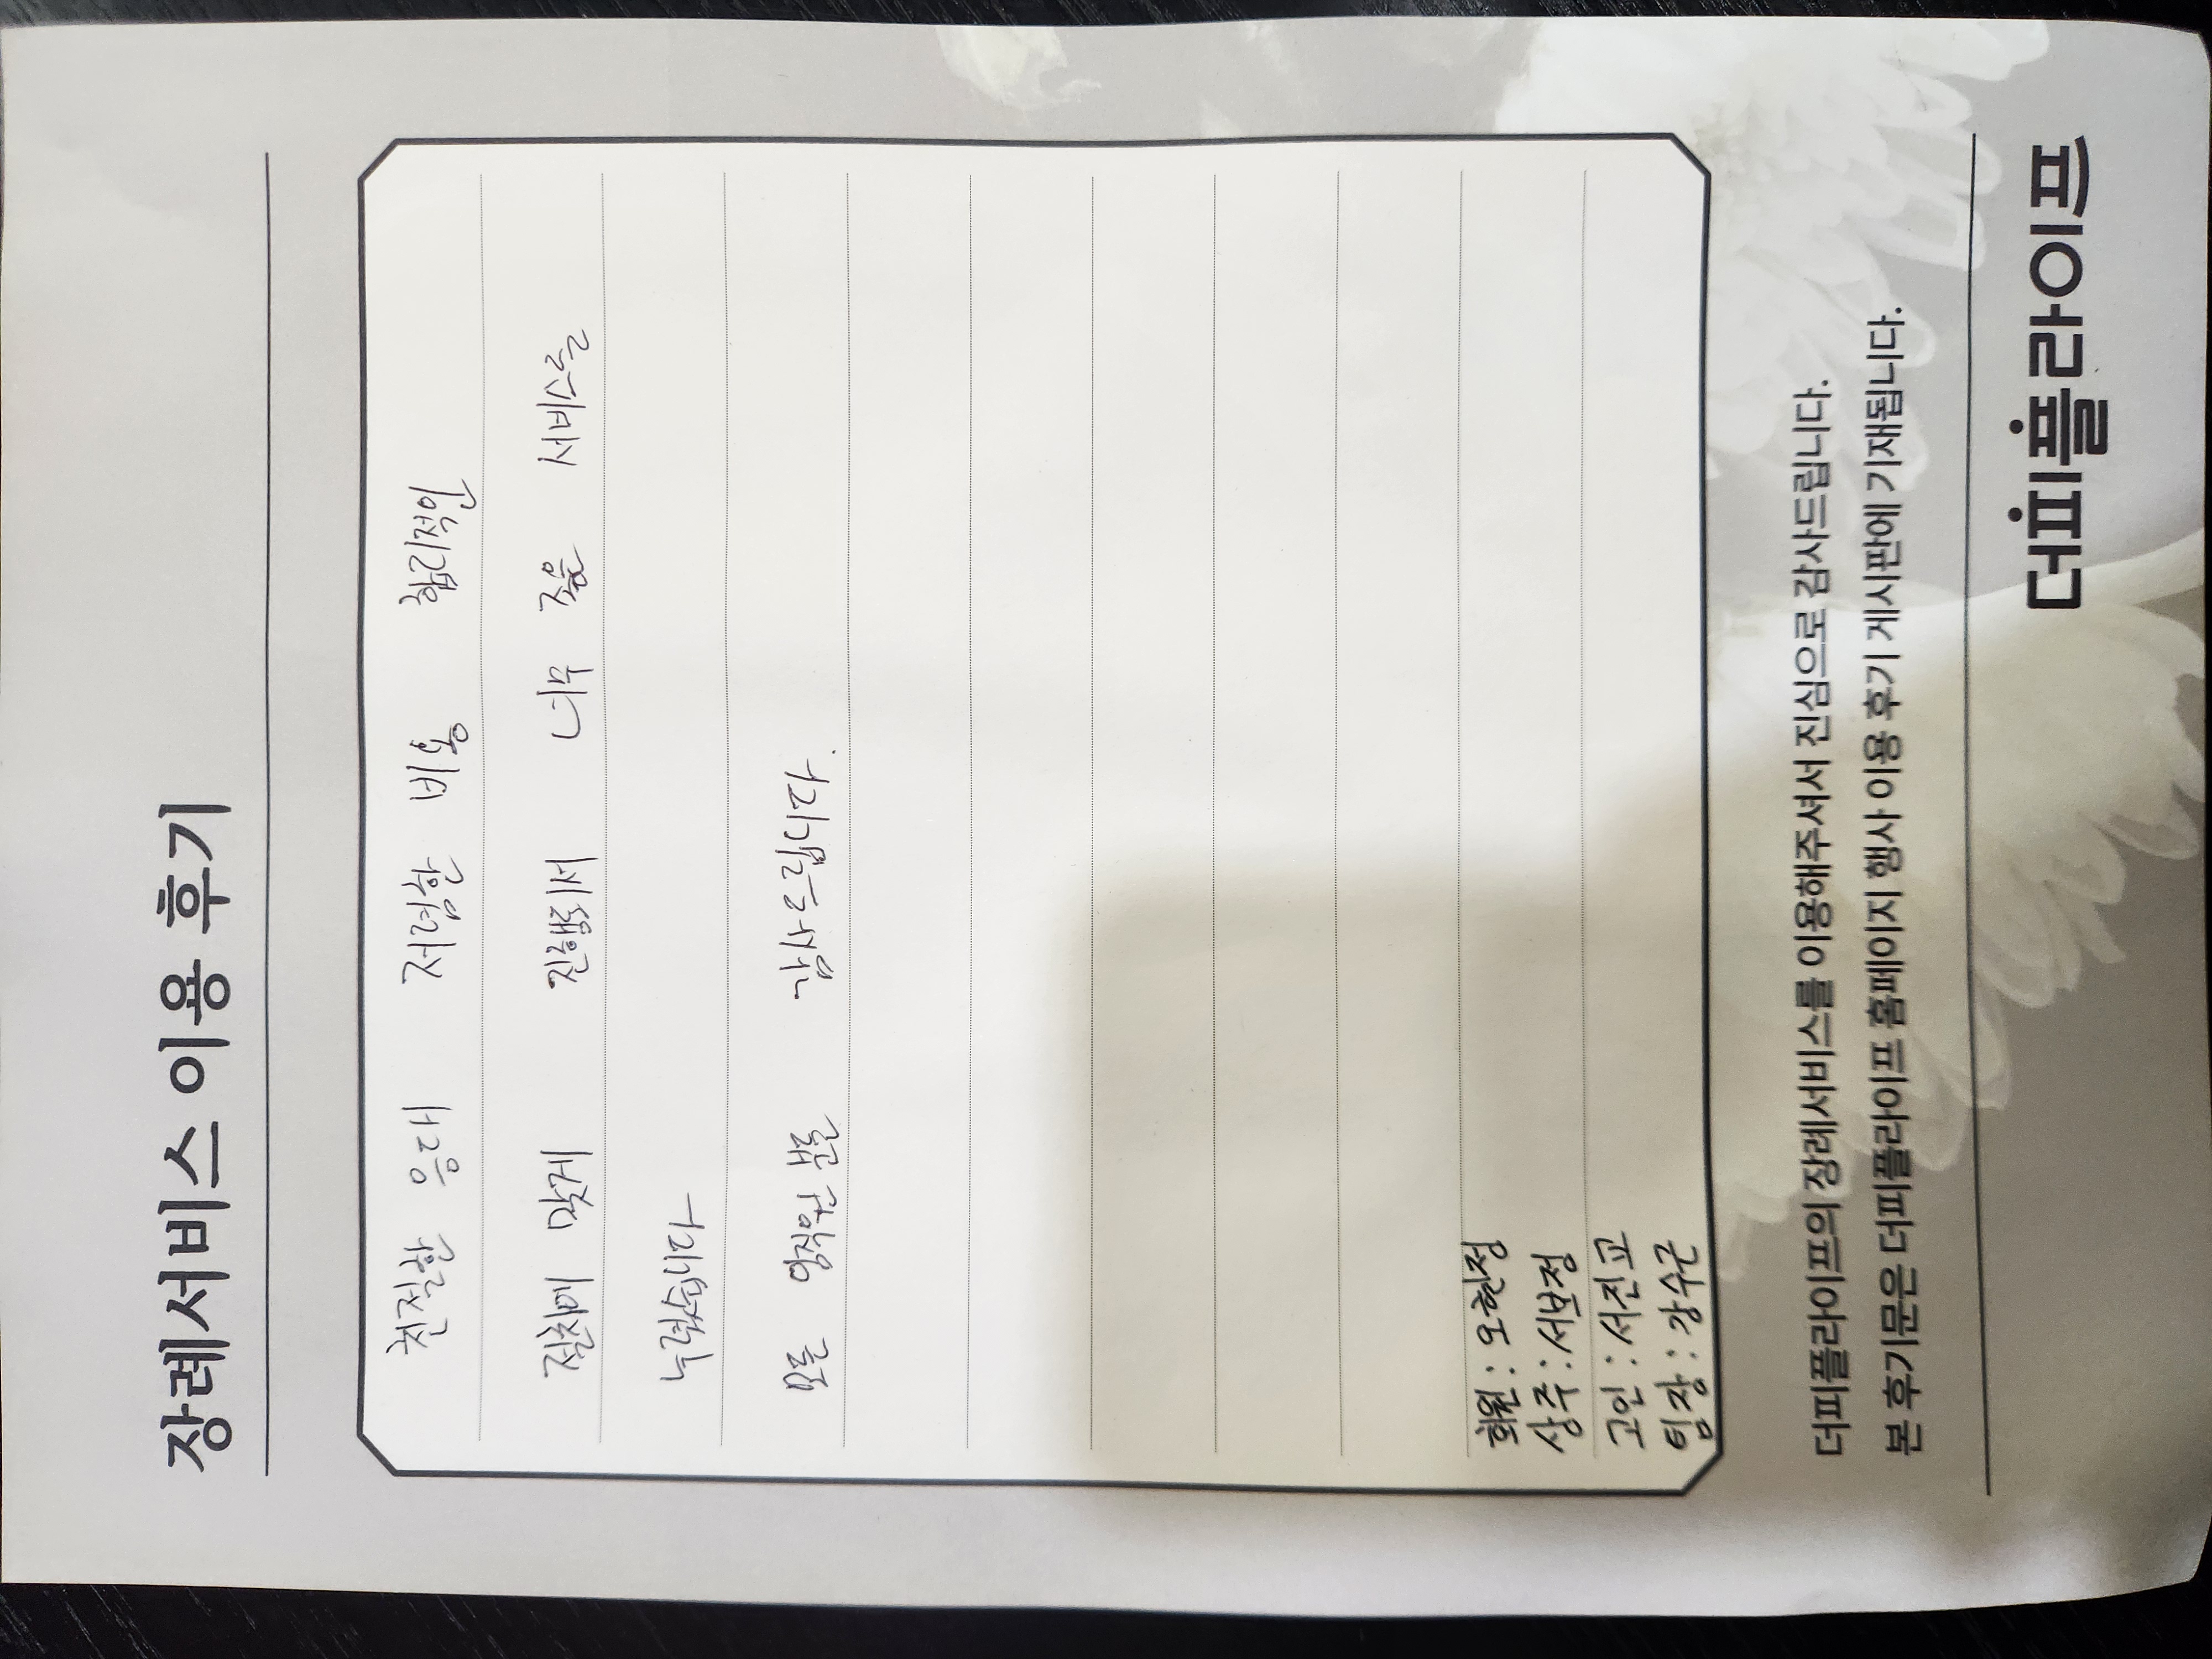 장례서비스 이용 후기
친절한 응대 저렴한 비용 합리적인
절차에 맞게 진행해서 너무 좋은 서비스를
누렸습니다
모든 임직원분들 감사드립니다.
회원 : 오현정
상주 : 서보정
고인 : 서진교
팀장 : 강수근
더피플라이프의 장례서비스를 이용해주셔서 진심으로 감사드립니다.
본 후기문은 더피플라이프 홈페이지 행사 이용 후기 게시판에 기재됩니다.
더피플라이프